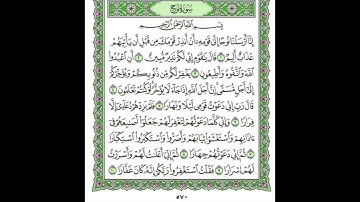 سُورَةُ نُوحٍ
بِسْمِ اللَّهِ الرَّحْمَٰنِ الرَّحِيمِ
إِنَّا أَرْسَلْنَا نُوحًا إِلَىٰ قَوْمِهِ أَنْ أَنذِرْ قَوْمَكَ مِن قَبْلِ أَن يَأْتِيَهُمْ
عَذَابٌ أَلِيمٌ ١ قَالَ يَا قَوْمِ إِنِّي لَكُمْ نَذِيرٌ مُّبِينٌ ٢ أَنِ اعْبُدُوا
اللَّهَ وَاتَّقُوهُ وَأَطِيعُونِ ٣ يَغْفِرْ لَكُم مِّن ذُنُوبِكُمْ وَيُؤَخِّرْكُمْ
إِلَىٰ أَجَلٍ مُّسَمًّى إِنَّ أَجَلَ اللَّهِ إِذَا جَاءَ لَا يُؤَخَّرُ لَوْ كُنتُمْ تَعْلَمُونَ ٤
قَالَ رَبِّ إِنِّي دَعَوْتُ قَوْمِي لَيْلًا وَنَهَارًا ٥ فَلَمْ يَزِدْهُمْ دُعَائِي إِلَّا
فِرَارًا ٦ وَإِنِّي كُلَّمَا دَعَوْتُهُمْ لِتَغْفِرَ لَهُمْ جَعَلُوا أَصَابِعَهُمْ فِي
آذَانِهِمْ وَاسْتَغْشَوْا ثِيَابَهُمْ وَأَصَرُّوا وَاسْتَكْبَرُوا اسْتِكْبَارًا
٧ ثُمَّ إِنِّي دَعَوْتُهُمْ جِهَارًا ٨ ثُمَّ إِنِّي أَعْلَنتُ لَهُمْ وَأَسْرَرْتُ
لَهُمْ إِسْرَارًا ٩ فَقُلْتُ اسْتَغْفِرُوا رَبَّكُمْ إِنَّهُ كَانَ غَفَّارًا ١٠
٥٧٠